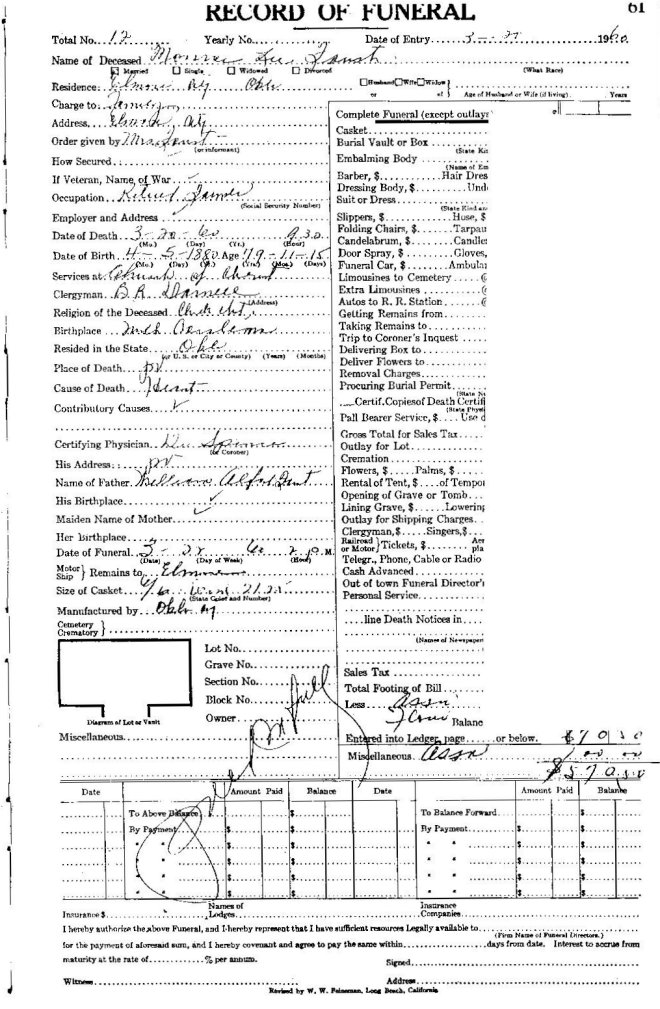 RECORD OF FUNERAL
61
Total No. 12 Yearly No. Date of Entry 3 - 1960
Name of Deceased Monroe Lee
Married Single Widowed Divorced (What Race)
Residence: Elmore Okla
Husband Wife Widow
or of Age of Husband or Wife (if living) Years
Charge to: Family
Address
Order given by Mrs
(or informant)
How Secured
If Veteran, Name of War
Occupation Retired Farmer
(Social Security Number)
Employer and Address
Date of Death 3-20-60 9:30
(Mo.) (Day) (Yr.) (Hour)
Date of Birth 4-5-1880 Age 79-11-15
(Mo.) (Day) (Yr.) (Yrs.) (Mos.) (Days)
Services at: Church of Christ
Clergyman B R
(Address)
Religion of the Deceased
Birthplace
Resided in the State Okla
(or U. S. or City or County) (Years) (Months)
Place of Death PV
Cause of Death Heart
Contributory Causes
Certifying Physician Dr. Spencer
(or Coroner)
His Address: PV
Name of Father William Alfred
His Birthplace
Maiden Name of Mother
Her birthplace
Date of Funeral 3 - 60 2 P.M.
(Date) (Day of Week) (Hour)
Motor Ship } Remains to Elmore
Size of Casket
(State Grief and Number)
Manufactured by Okla
Cemetery
Crematory }
Lot No.
Grave No.
Section No.
Block No.
Owner
Diagram of Lot or Vault
Miscellaneous
Complete Funeral (except outlays
Casket
Burial Vault or Box
(State Ki
Embalming Body
(Name of Em
Barber, $ Hair Dres
Dressing Body, $ Und
Suit or Dress
(State Kind an
Slippers, $ Hose, $
Folding Chairs, $ Tarpau
Candelabrum, $ Candle
Door Spray, $ Gloves,
Funeral Car, $ Ambula
Limousines to Cemetery @
Extra Limousines @
Autos to R. R. Station @
Getting Remains from
Taking Remains to
Trip to Coroner's Inquest
Delivering Box to
Deliver Flowers to
Removal Charges
Procuring Burial Permit
(State N
Certif. Copies of Death Certifi
(State Physi
Pall Bearer Service, $ Use o
Gross Total for Sales Tax
Outlay for Lot
Cremation
Flowers, $ Palms, $
Rental of Tent, $ of Tempo
Opening of Grave or Tomb
Lining Grave, $ Lowering
Outlay for Shipping Charges
Clergyman, $ Singers, $
Railroad or Motor } Tickets, $ Aer pla
Telegr., Phone, Cable or Radio
Cash Advanced
Out of town Funeral Director's
Personal Service
line Death Notices in
(Names of Newspaper
Sales Tax
Total Footing of Bill
Less Assn
Balanc
Entered into Ledger, page or below.
Miscellaneous Assn
Date Amount Paid Balance Date Amount Paid Balance
To Above Balance $ $ To Balance Forward
By Payment $ $ By Payment $ $
" " $ $ " " $ $
" " $ $ " " $ $
" " $ $ " " $ $
" " $ $ " " $ $
Insurance $ Names of Lodges Insurance Companies
I hereby authorize the above Funeral, and I hereby represent that I have sufficient resources Legally available to
(Firm Name of Funeral Directors.)
for the payment of aforesaid sum, and I hereby covenant and agree to pay the same within days from date. Interest to accrue from
maturity at the rate of % per annum. Signed
Witness Address
Revised by W. W. Peineman, Long Beach, California